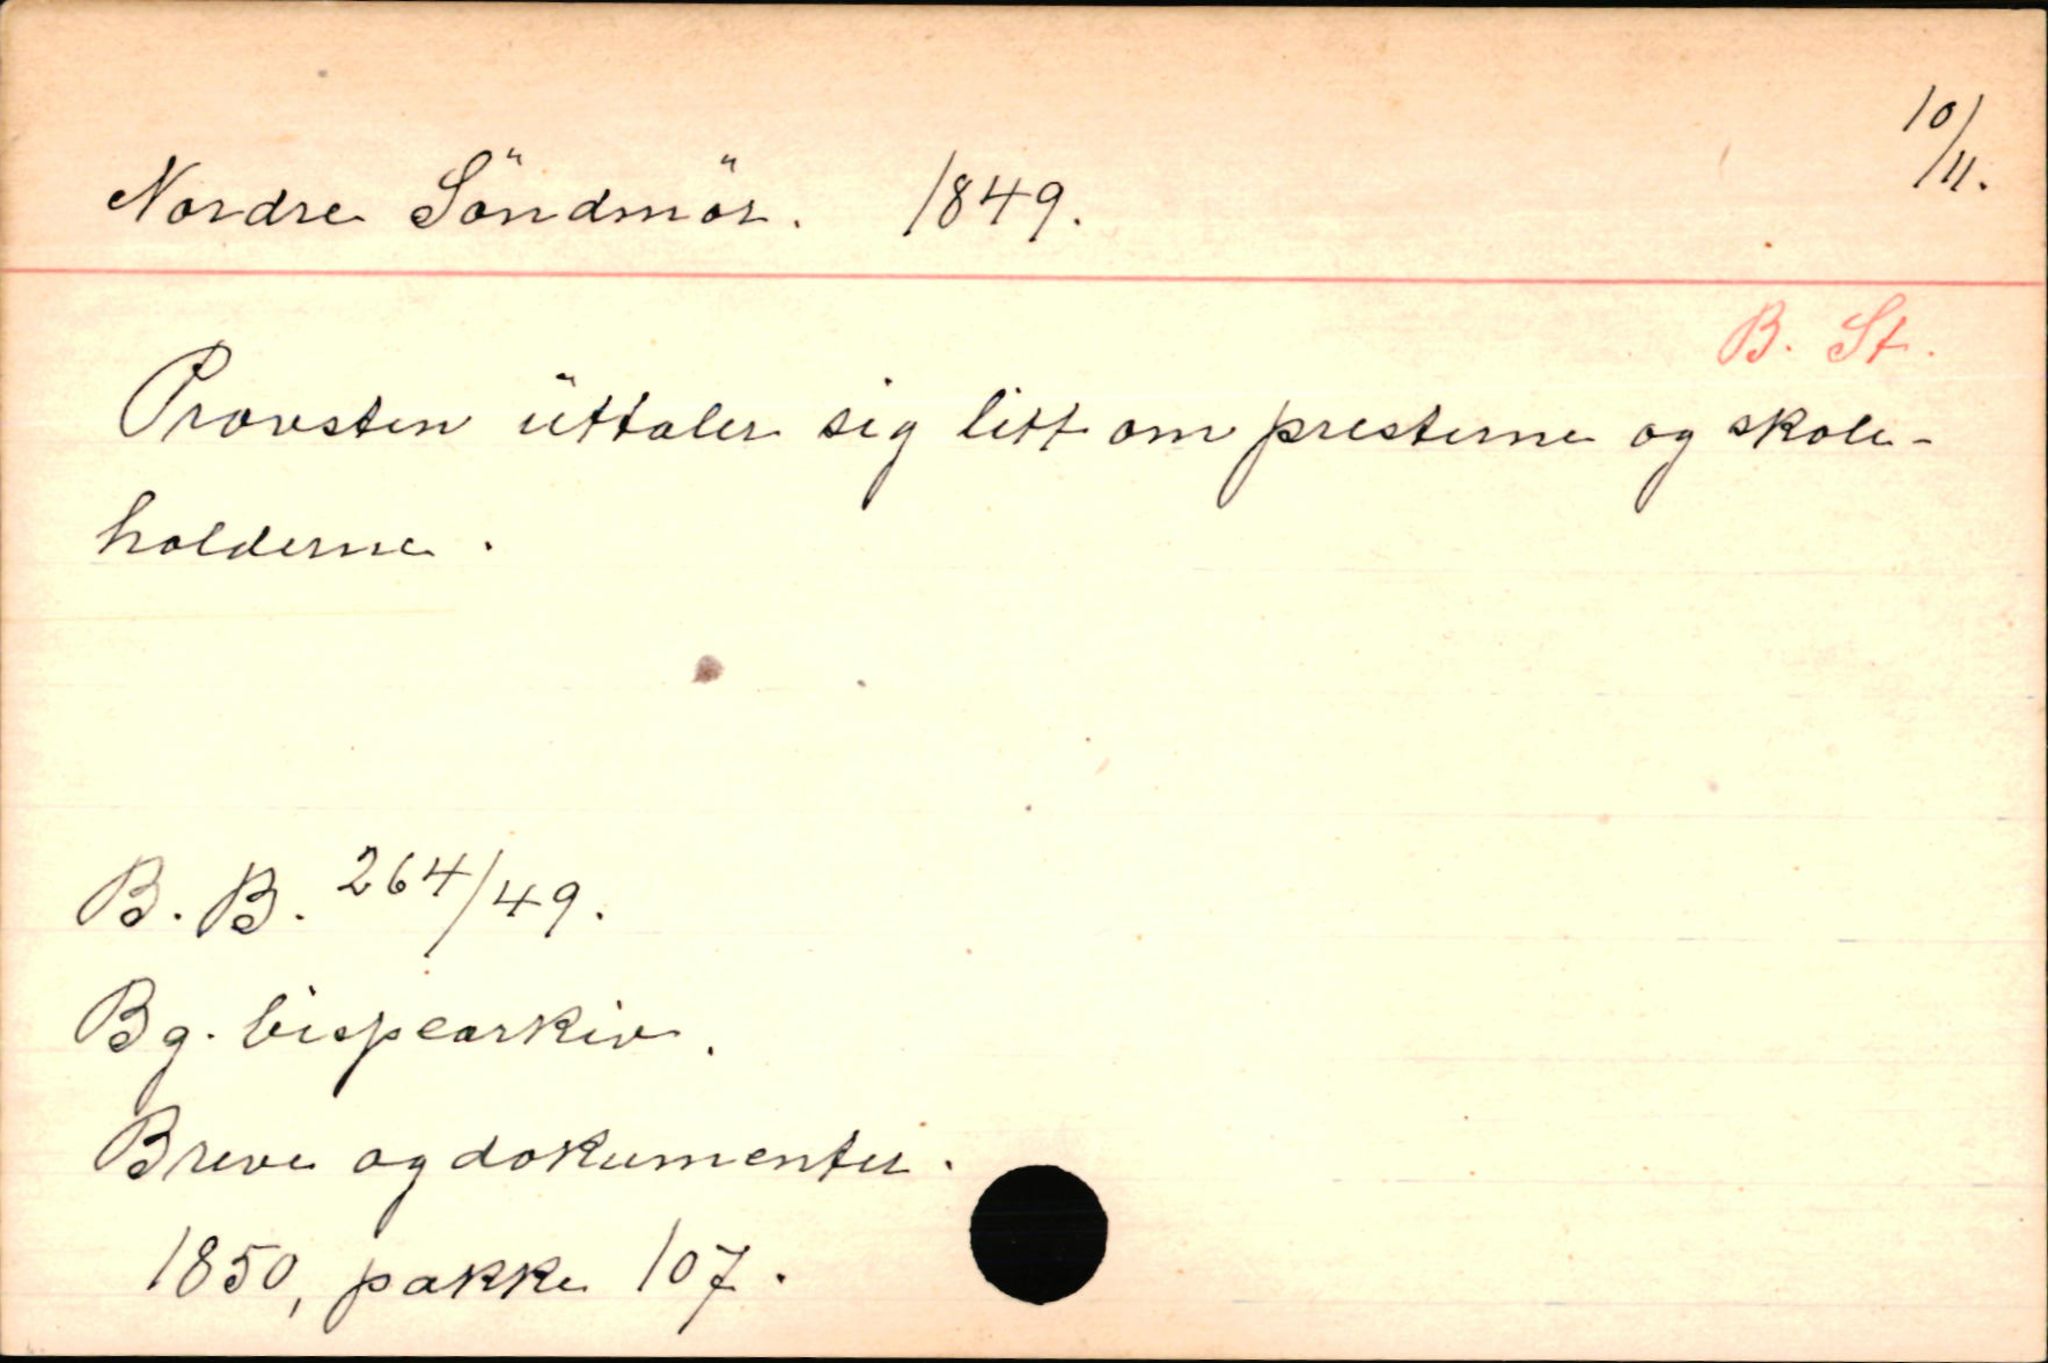 Nordre Söndmör. 1849. 10/11.
B. St.
Provsten üttaler sig litt om presterne og skole-
holderne.
B. B. 264/49.
Bg. bispearkiv.
Breve og dokumenter.
1850, pakke 107.